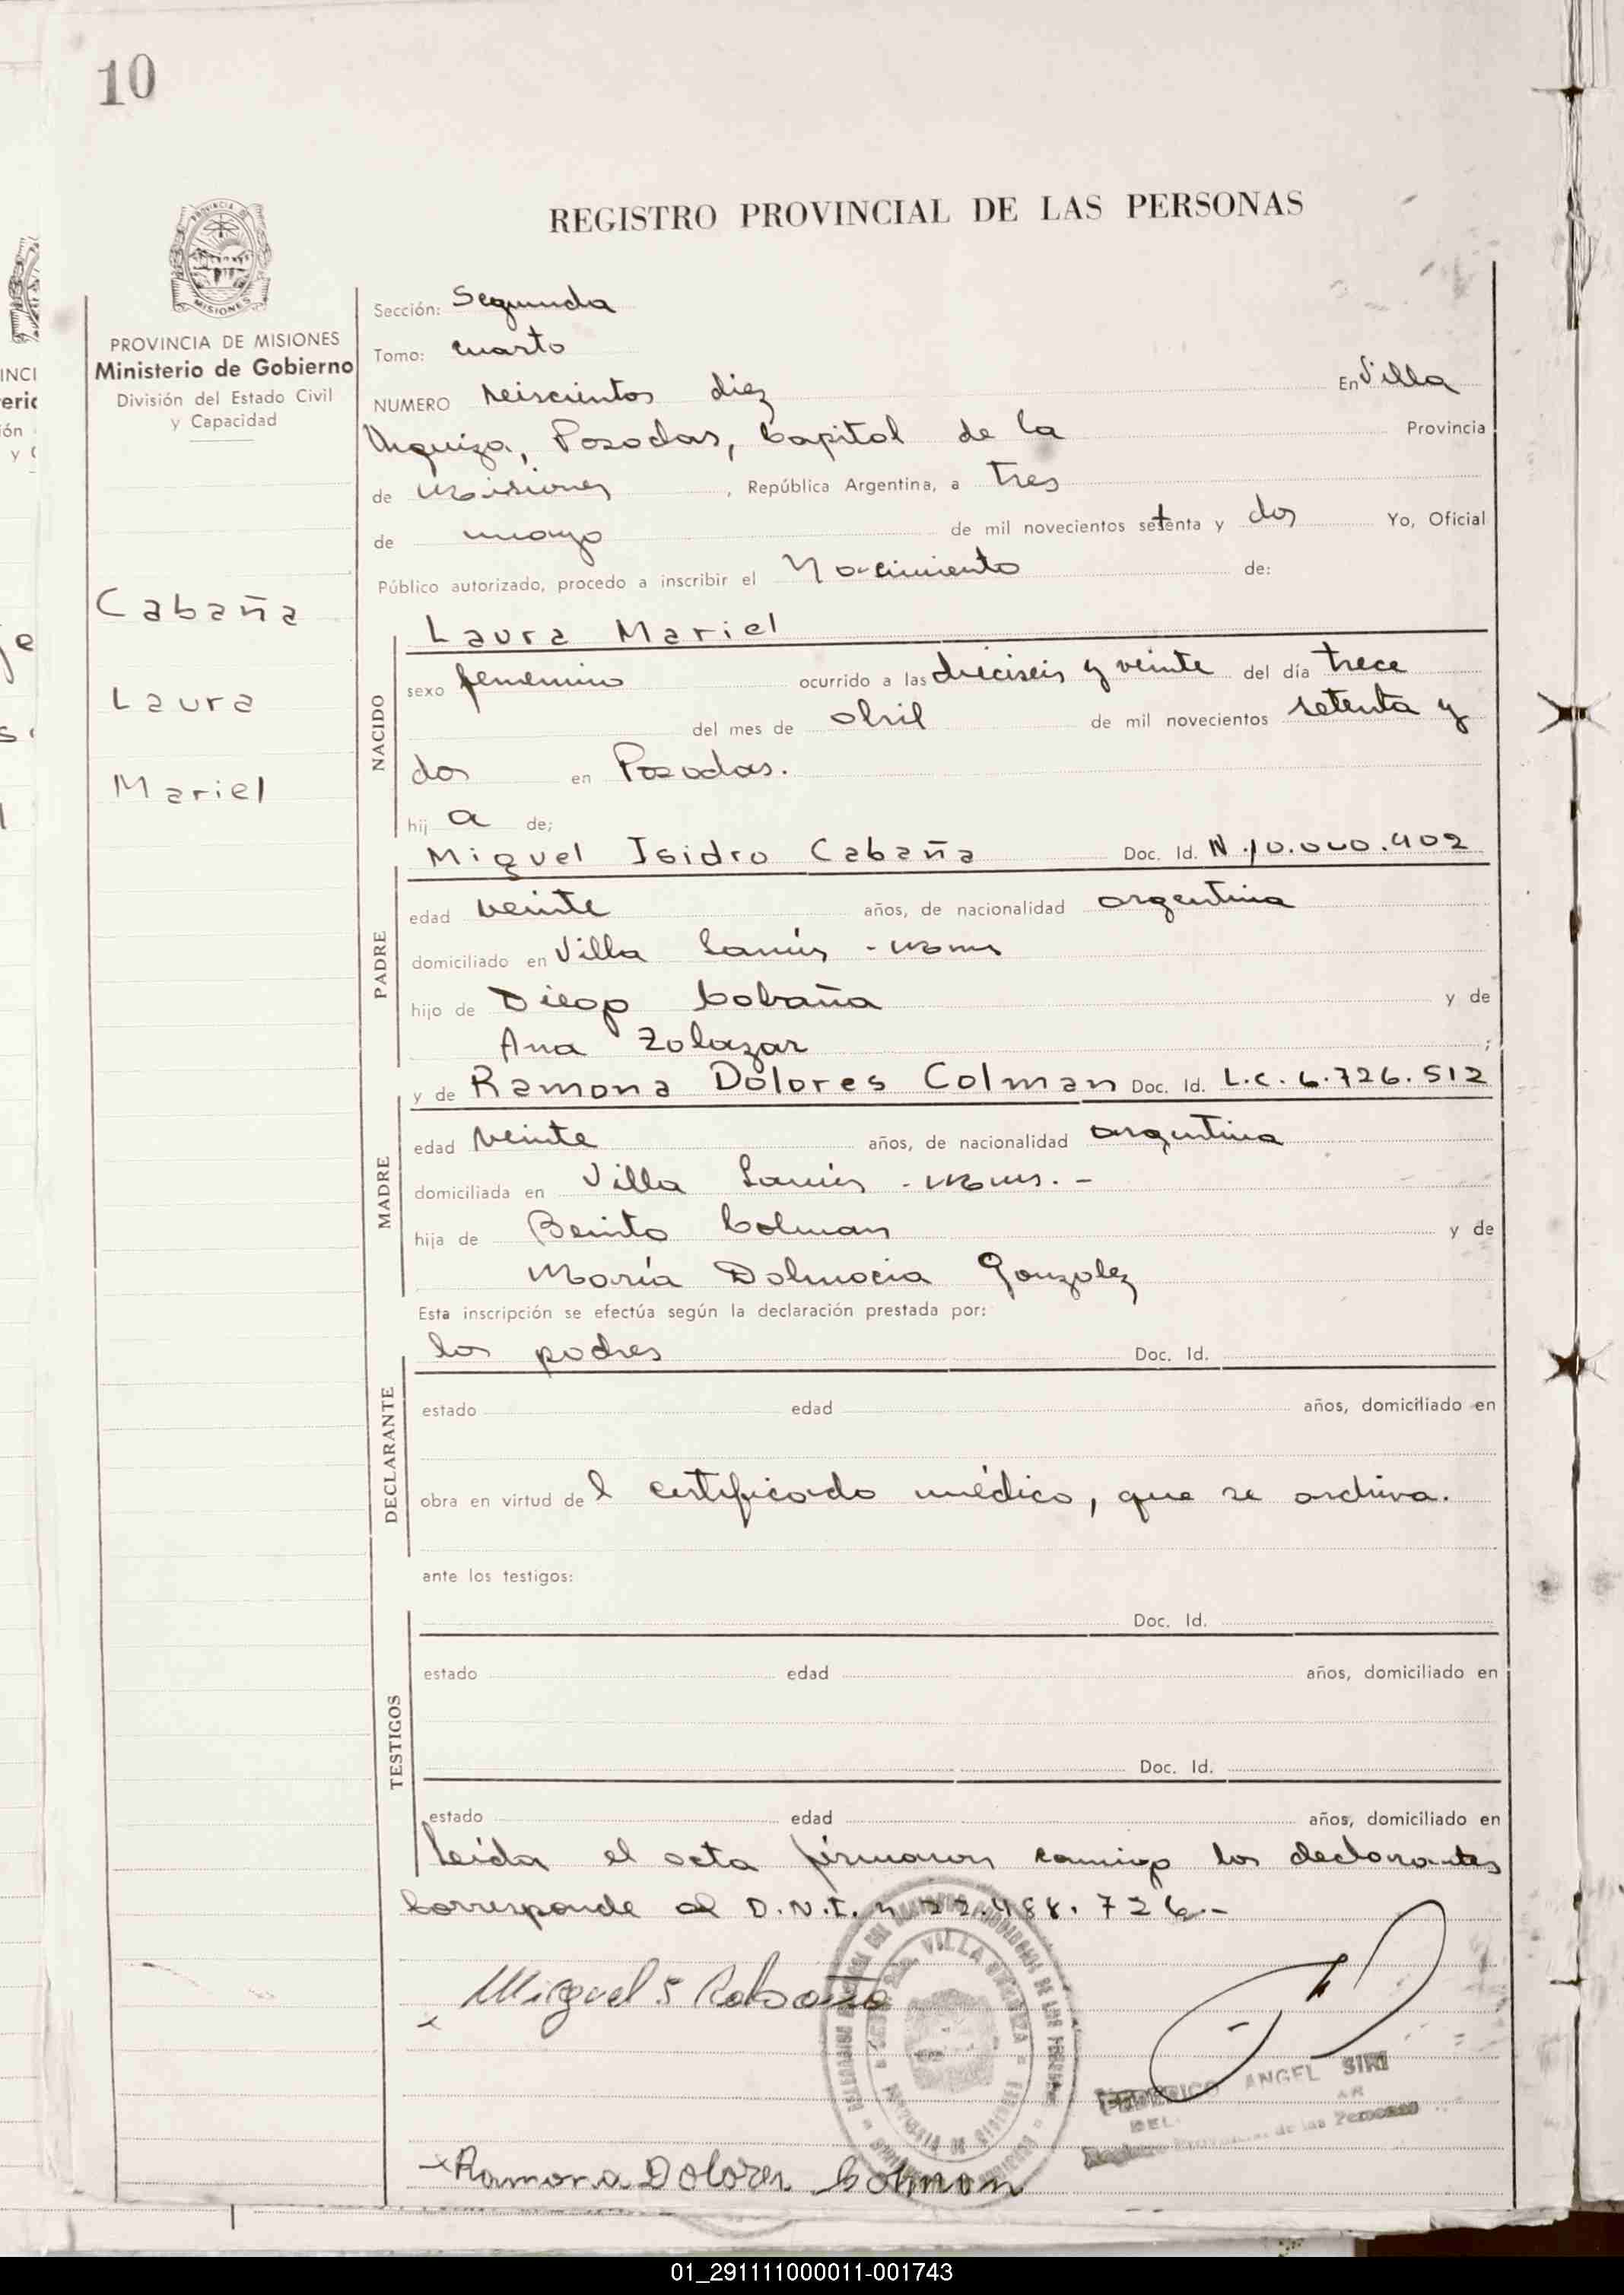 10
REGISTRO PROVINCIAL DE LAS PERSONAS
PROVINCIA DE MISIONES
Ministerio de Gobierno
División del Estado Civil
y Capacidad
Cabaña
Laura
Mariel
Sección: Segunda
Tomo: cuarto
NUMERO seiscientos diez En Villa
Urquiza, Posadas, Capital de la Provincia
de Misiones, República Argentina, a tres
de mayo de mil novecientos setenta y dos Yo, Oficial
Público autorizado, procedo a inscribir el Nacimiento de:
NACIDO
Laura Mariel
sexo femenino ocurrido a las dieciseis y veinte del día trece
del mes de abril de mil novecientos setenta y
dos en Posadas.
hija de;
Miguel Isidro Cabaña Doc. Id. N.10.040.402
PADRE
edad veinte años, de nacionalidad argentina
domiciliado en Villa Lanús - Mnes
hijo de Diego Cabaña y de
Ana Zolazar ;
y de Ramona Dolores Colman Doc. Id. L.C. 6.726.512
MADRE
edad veinte años, de nacionalidad argentina
domiciliada en Villa Lanús - Mnes. -
hija de Benito Colman y de
María Dalmacia Gonzalez
Esta inscripción se efectúa según la declaración prestada por:
los padres Doc. Id.
DECLARANTE
estado edad años, domiciliado en
obra en virtud del certificado médico, que se archiva.
ante los testigos:
Doc. Id.
TESTIGOS
estado edad años, domiciliado en
Doc. Id.
estado edad años, domiciliado en
Leída el acta firmaron conmigo los declarantes
Corresponde al D.N.I. n 22.488.726.-
Miguel I Cabaña
VILLA URQUIZA
FEDERICO ANGEL SIRI
DEL
de las Personas
Ramona Dolores Colman
01_291111000011-001743